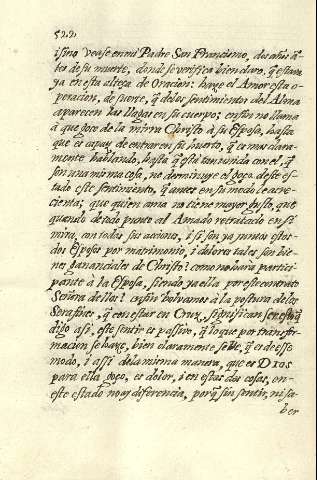 522
isino vease en mi Padre San Francisco, dos años ã-
tes de su muerte, donde se verifica bien claro, q̃ estava
ya en esta alteza de Oracion: haze el Amor esta o-
peracion, de suerte, q̃ de los sentimientos del Alma
aparecen las llagas en su cuerpo; en fin no llama
à que goze de la mirra Christo à su Esposa, hasta
que es capaz de entrar en su huerto, q̃ es mas clara-
mente hablando, hasta q̃ està tan unida con el, q̃
son una misma cosa, no disminuye el gozo de este es-
tado este sentimiento, q̃ antes en su modo le acre-
cienta; que quien ama no tiene mayor gusto, que
quando de todo punto al Amado retratado en si
mira, con todas sus acciones, i si son ya juntos estos
dos Esposos por matrimonio, i dolores tales son bie-
nes gananciales de Christo: como no havia partici-
pante à la Esposa, siendo ya ella por este contrato
Señora dellos? en fin bolvamos à la postura de los
Serafines, q̃ con estar en Cruz, significan
dijo assi, este sentir es passivo, q̃ lo que por transfor-
macion se haze, bien claramente se ve, q̃ es de esse
modo, i assi de la misma manera, que es DIOS
para ella gozo, es dolor, i en estas dos cosas, en
este estado no ay diferencia, porq̃ sin sentir, ni sa-
ber